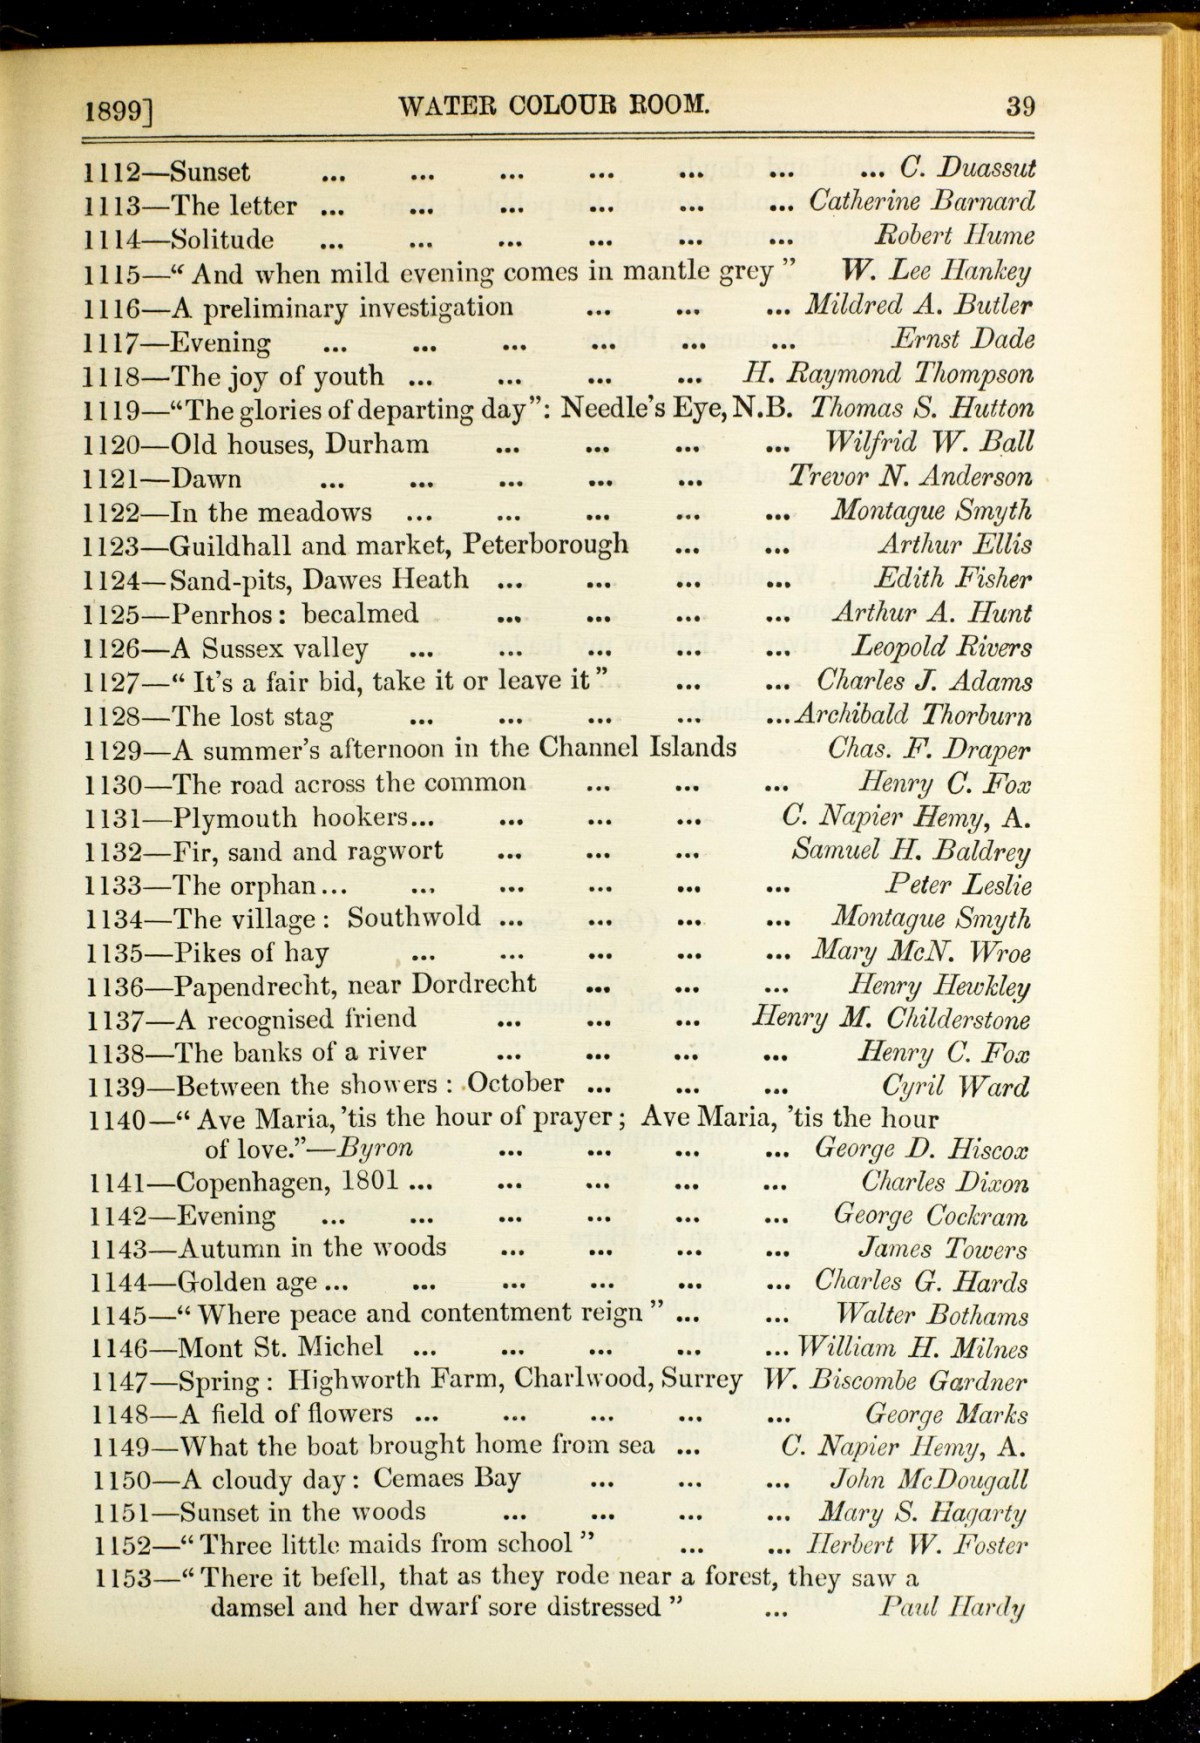 1899] WATER COLOUR ROOM. 39
1112—Sunset ... ... ... ... ... ... ... C. Duassut
1113—The letter ... ... ... ... ... ... Catherine Barnard
1114—Solitude ... ... ... ... ... ... Robert Hume
1115—“ And when mild evening comes in mantle grey ” W. Lee Hankey
1116—A preliminary investigation ... ... ... Mildred A. Butler
1117—Evening ... ... ... ... ... ... Ernst Dade
1118—The joy of youth ... ... ... ... H. Raymond Thompson
1119—“The glories of departing day”: Needle's Eye, N.B. Thomas S. Hutton
1120—Old houses, Durham ... ... ... ... Wilfrid W. Ball
1121—Dawn ... ... ... ... ... Trevor N. Anderson
1122—In the meadows ... ... ... ... ... Montague Smyth
1123—Guildhall and market, Peterborough ... ... Arthur Ellis
1124—Sand-pits, Dawes Heath ... ... ... ... Edith Fisher
1125—Penrhos: becalmed ... ... ... ... Arthur A. Hunt
1126—A Sussex valley ... ... ... ... ... Leopold Rivers
1127—“ It's a fair bid, take it or leave it” ... ... Charles J. Adams
1128—The lost stag ... ... ... ... ... Archibald Thorburn
1129—A summer's afternoon in the Channel Islands Chas. F. Draper
1130—The road across the common ... ... ... Henry C. Fox
1131—Plymouth hookers... ... ... ... C. Napier Hemy, A.
1132—Fir, sand and ragwort ... ... ... Samuel H. Baldrey
1133—The orphan... ... ... ... ... ... Peter Leslie
1134—The village: Southwold ... ... ... ... Montague Smyth
1135—Pikes of hay ... ... ... ... ... Mary McN. Wroe
1136—Papendrecht, near Dordrecht ... ... ... Henry Hewkley
1137—A recognised friend ... ... ... Henry M. Childerstone
1138—The banks of a river ... ... ... ... Henry C. Fox
1139—Between the showers: October ... ... ... Cyril Ward
1140—“ Ave Maria, 'tis the hour of prayer; Ave Maria, 'tis the hour
of love.”—Byron ... ... ... ... George D. Hiscox
1141—Copenhagen, 1801 ... ... ... ... ... Charles Dixon
1142—Evening ... ... ... ... ... ... George Cockram
1143—Autumn in the woods ... ... ... ... James Towers
1144—Golden age ... ... ... ... ... ... Charles G. Hards
1145—“ Where peace and contentment reign ” ... ... Walter Bothams
1146—Mont St. Michel ... ... ... ... ... William H. Milnes
1147—Spring: Highworth Farm, Charlwood, Surrey W. Biscombe Gardner
1148—A field of flowers ... ... ... ... ... George Marks
1149—What the boat brought home from sea ... C. Napier Hemy, A.
1150—A cloudy day: Cemaes Bay ... ... ... John McDougall
1151—Sunset in the woods ... ... ... ... Mary S. Hagarty
1152—“ Three little maids from school ” ... ... Herbert W. Foster
1153—“ There it befell, that as they rode near a forest, they saw a
damsel and her dwarf sore distressed ” ... Paul Hardy